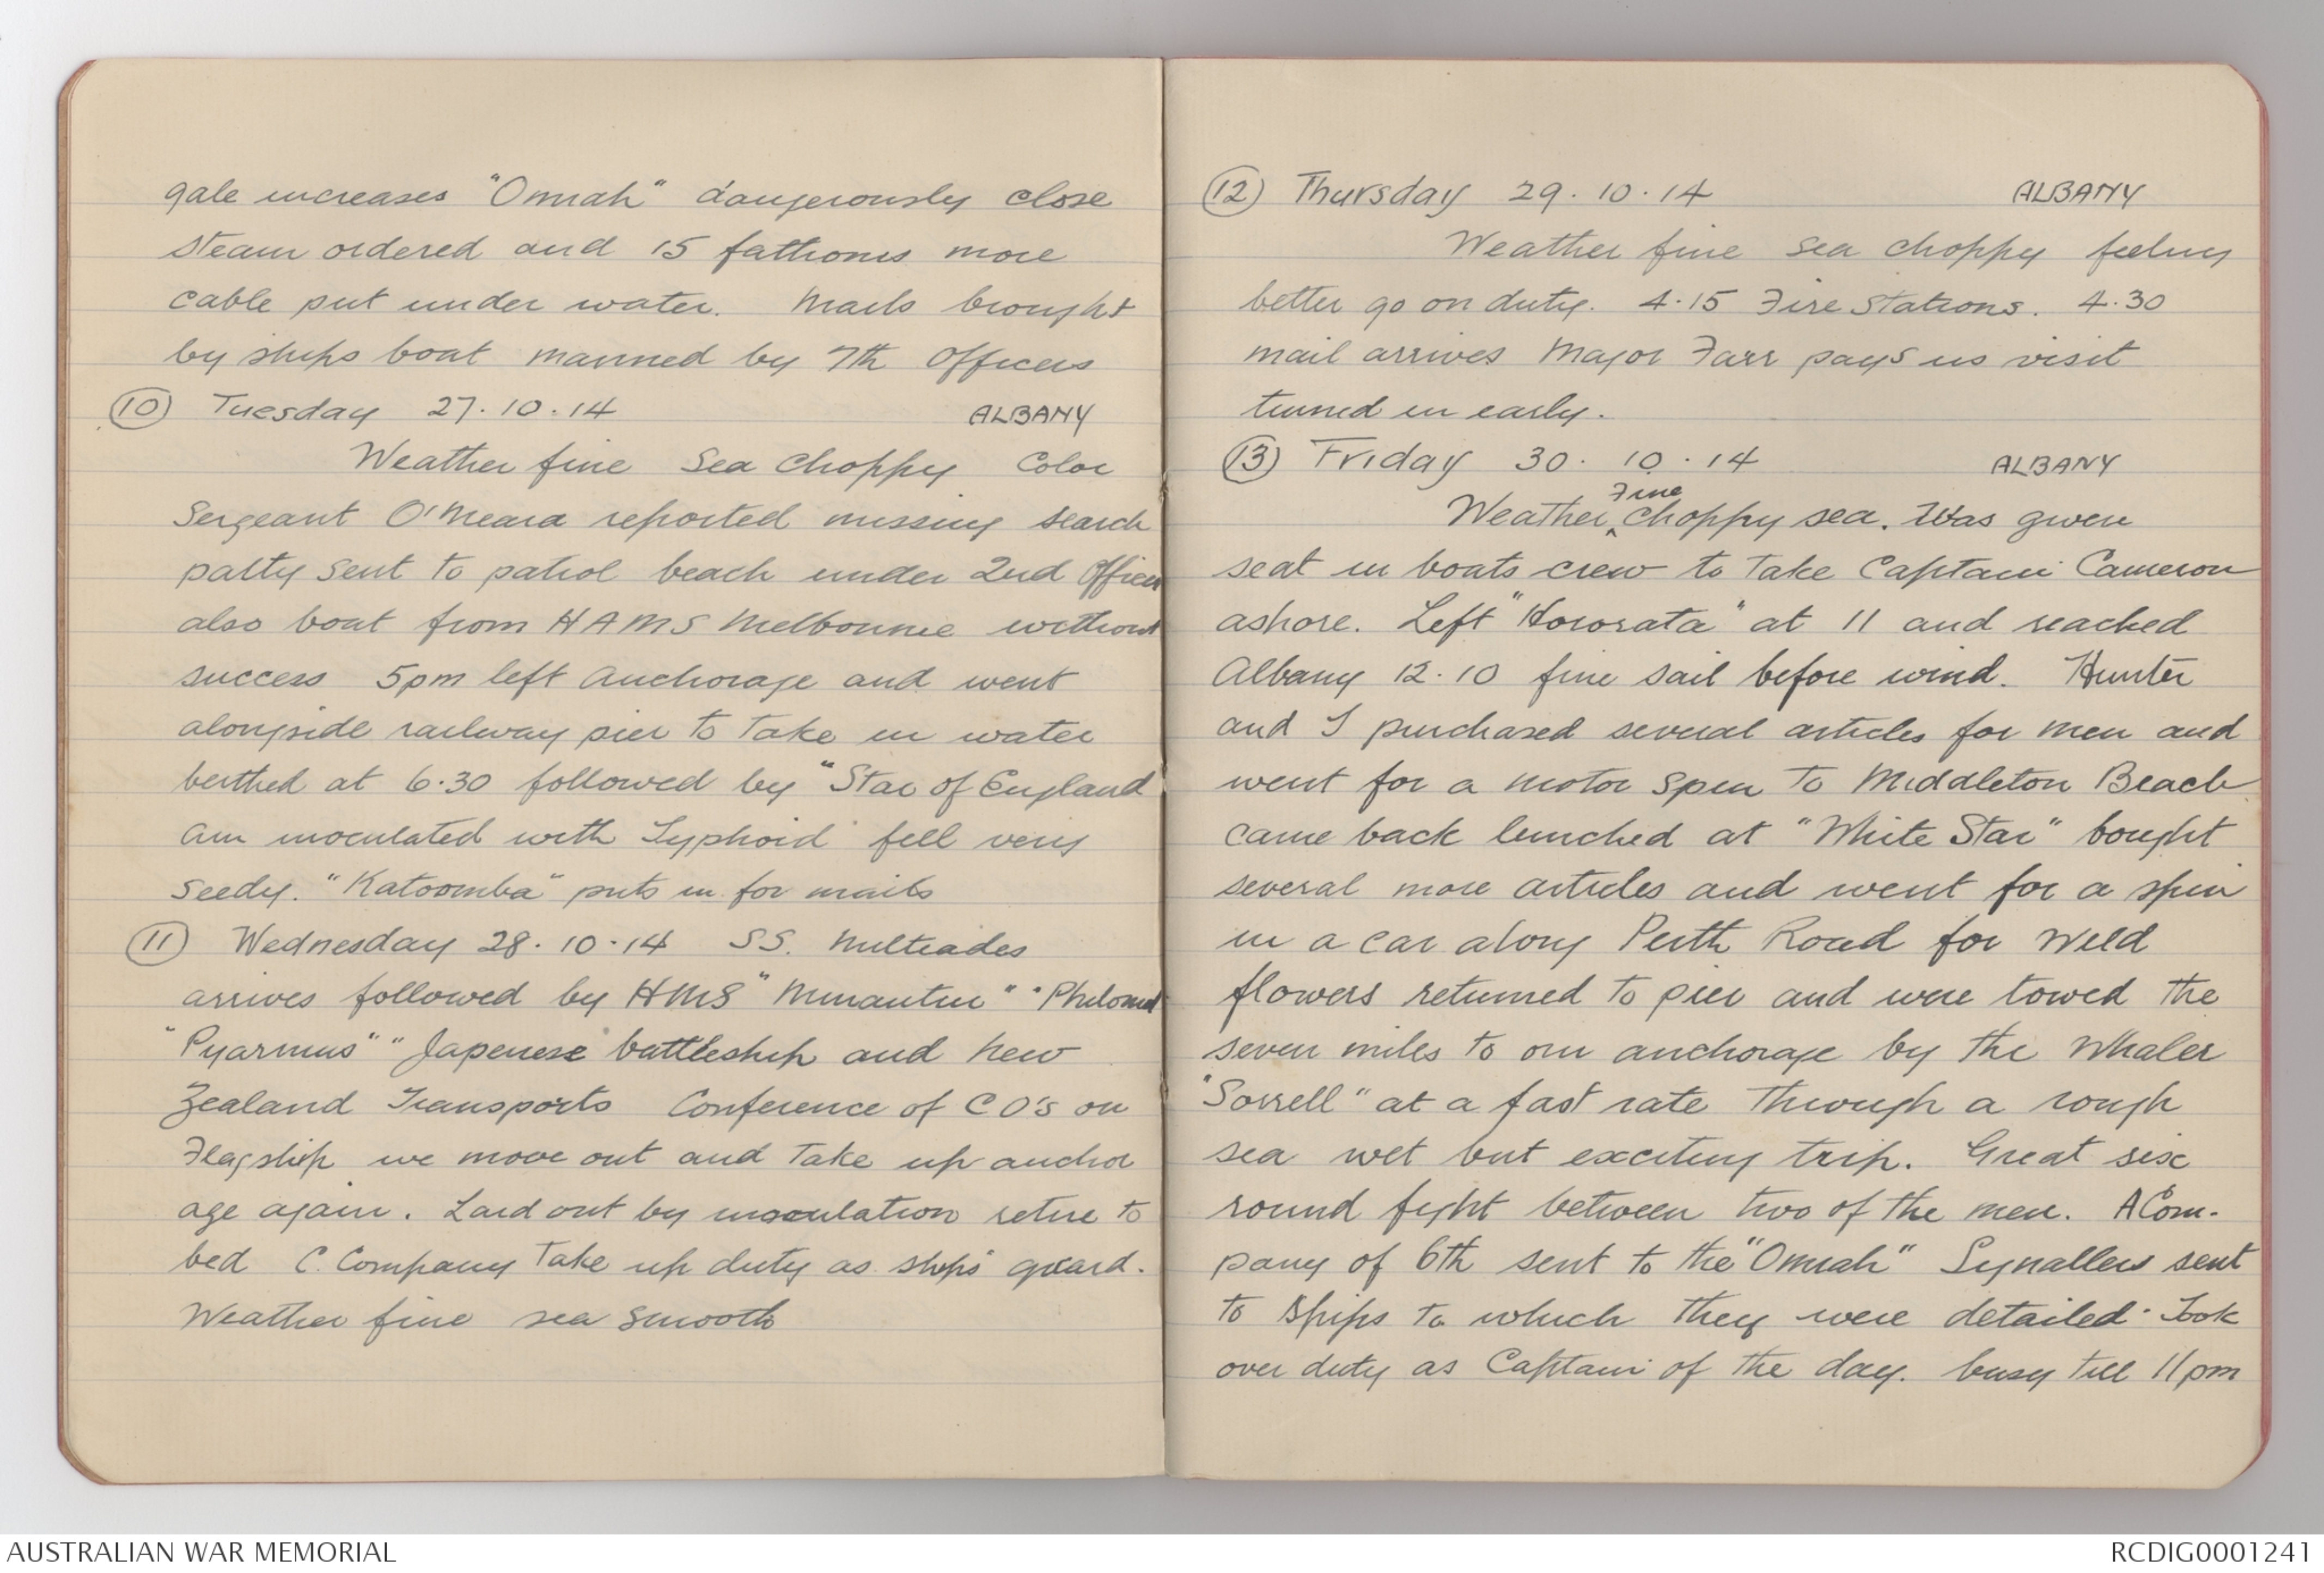 gale increases "Omrah" dangerously close
steam ordered and 15 fathoms more
cable put under water. Mails brought
by ships boat manned by 7th Officers
(10) Tuesday 27.10.14 ALBANY
Weather fine Sea Choppy Color
Sergeant O'Meara reported missing search
patty sent to patrol beach under 2nd Officer
also boat from HAMS Melbourne without
success 5pm left Anchorage and went
alongside railway pier to take in water
berthed at 6.30 followed by "Star of England
am inoculated with Typhoid fell very
seedy. "Katoomba" puts in for mails
(11) Wednesday 28.10.14 SS. Miltiades
arrives followed by HMS "Minautur" "Philomel
"Pyarmus" " Japenese battleship and New
Zealand Transports Conference of CO's on
Flagship we move out and take up anchor
age again. Laid out by inoculation retire to
bed C. Company take up duty as ships guard.
Weather fine sea smooth
(12) Thursday 29.10.14 ALBANY
Weather fine sea choppy feeling
better go on duty. 4.15 Fire Stations. 4.30
mail arrives Major Farr pays us visit
turned in early.
(13) Friday 30.10.14 ALBANY
Weather Fine choppy sea. Was given
seat in boats crew to take Captain Cameron
ashore. Left "Hororata" at 11 and reached
Albany 12.10 fine sail before wind. Hunter
and I purchased several articles for men and
went for a motor spin to Middleton Beach
came back lunched at "White Star" bought
several more articles and went for a spin
in a car along Perth Road for Wild
flowers returned to pier and were towed the
seven miles to our anchorage by the Whaler
"Sorrell" at a fast rate through a rough
sea wet but exciting trip. Great six
round fight between two of the men. A Com-
pany of 6th sent to the "Omrah" Signallers sent
to ships to which they were detailed. Took
over duty as Captain of the day. busy till 11pm
AUSTRALIAN WAR MEMORIAL
RCDIG0001241